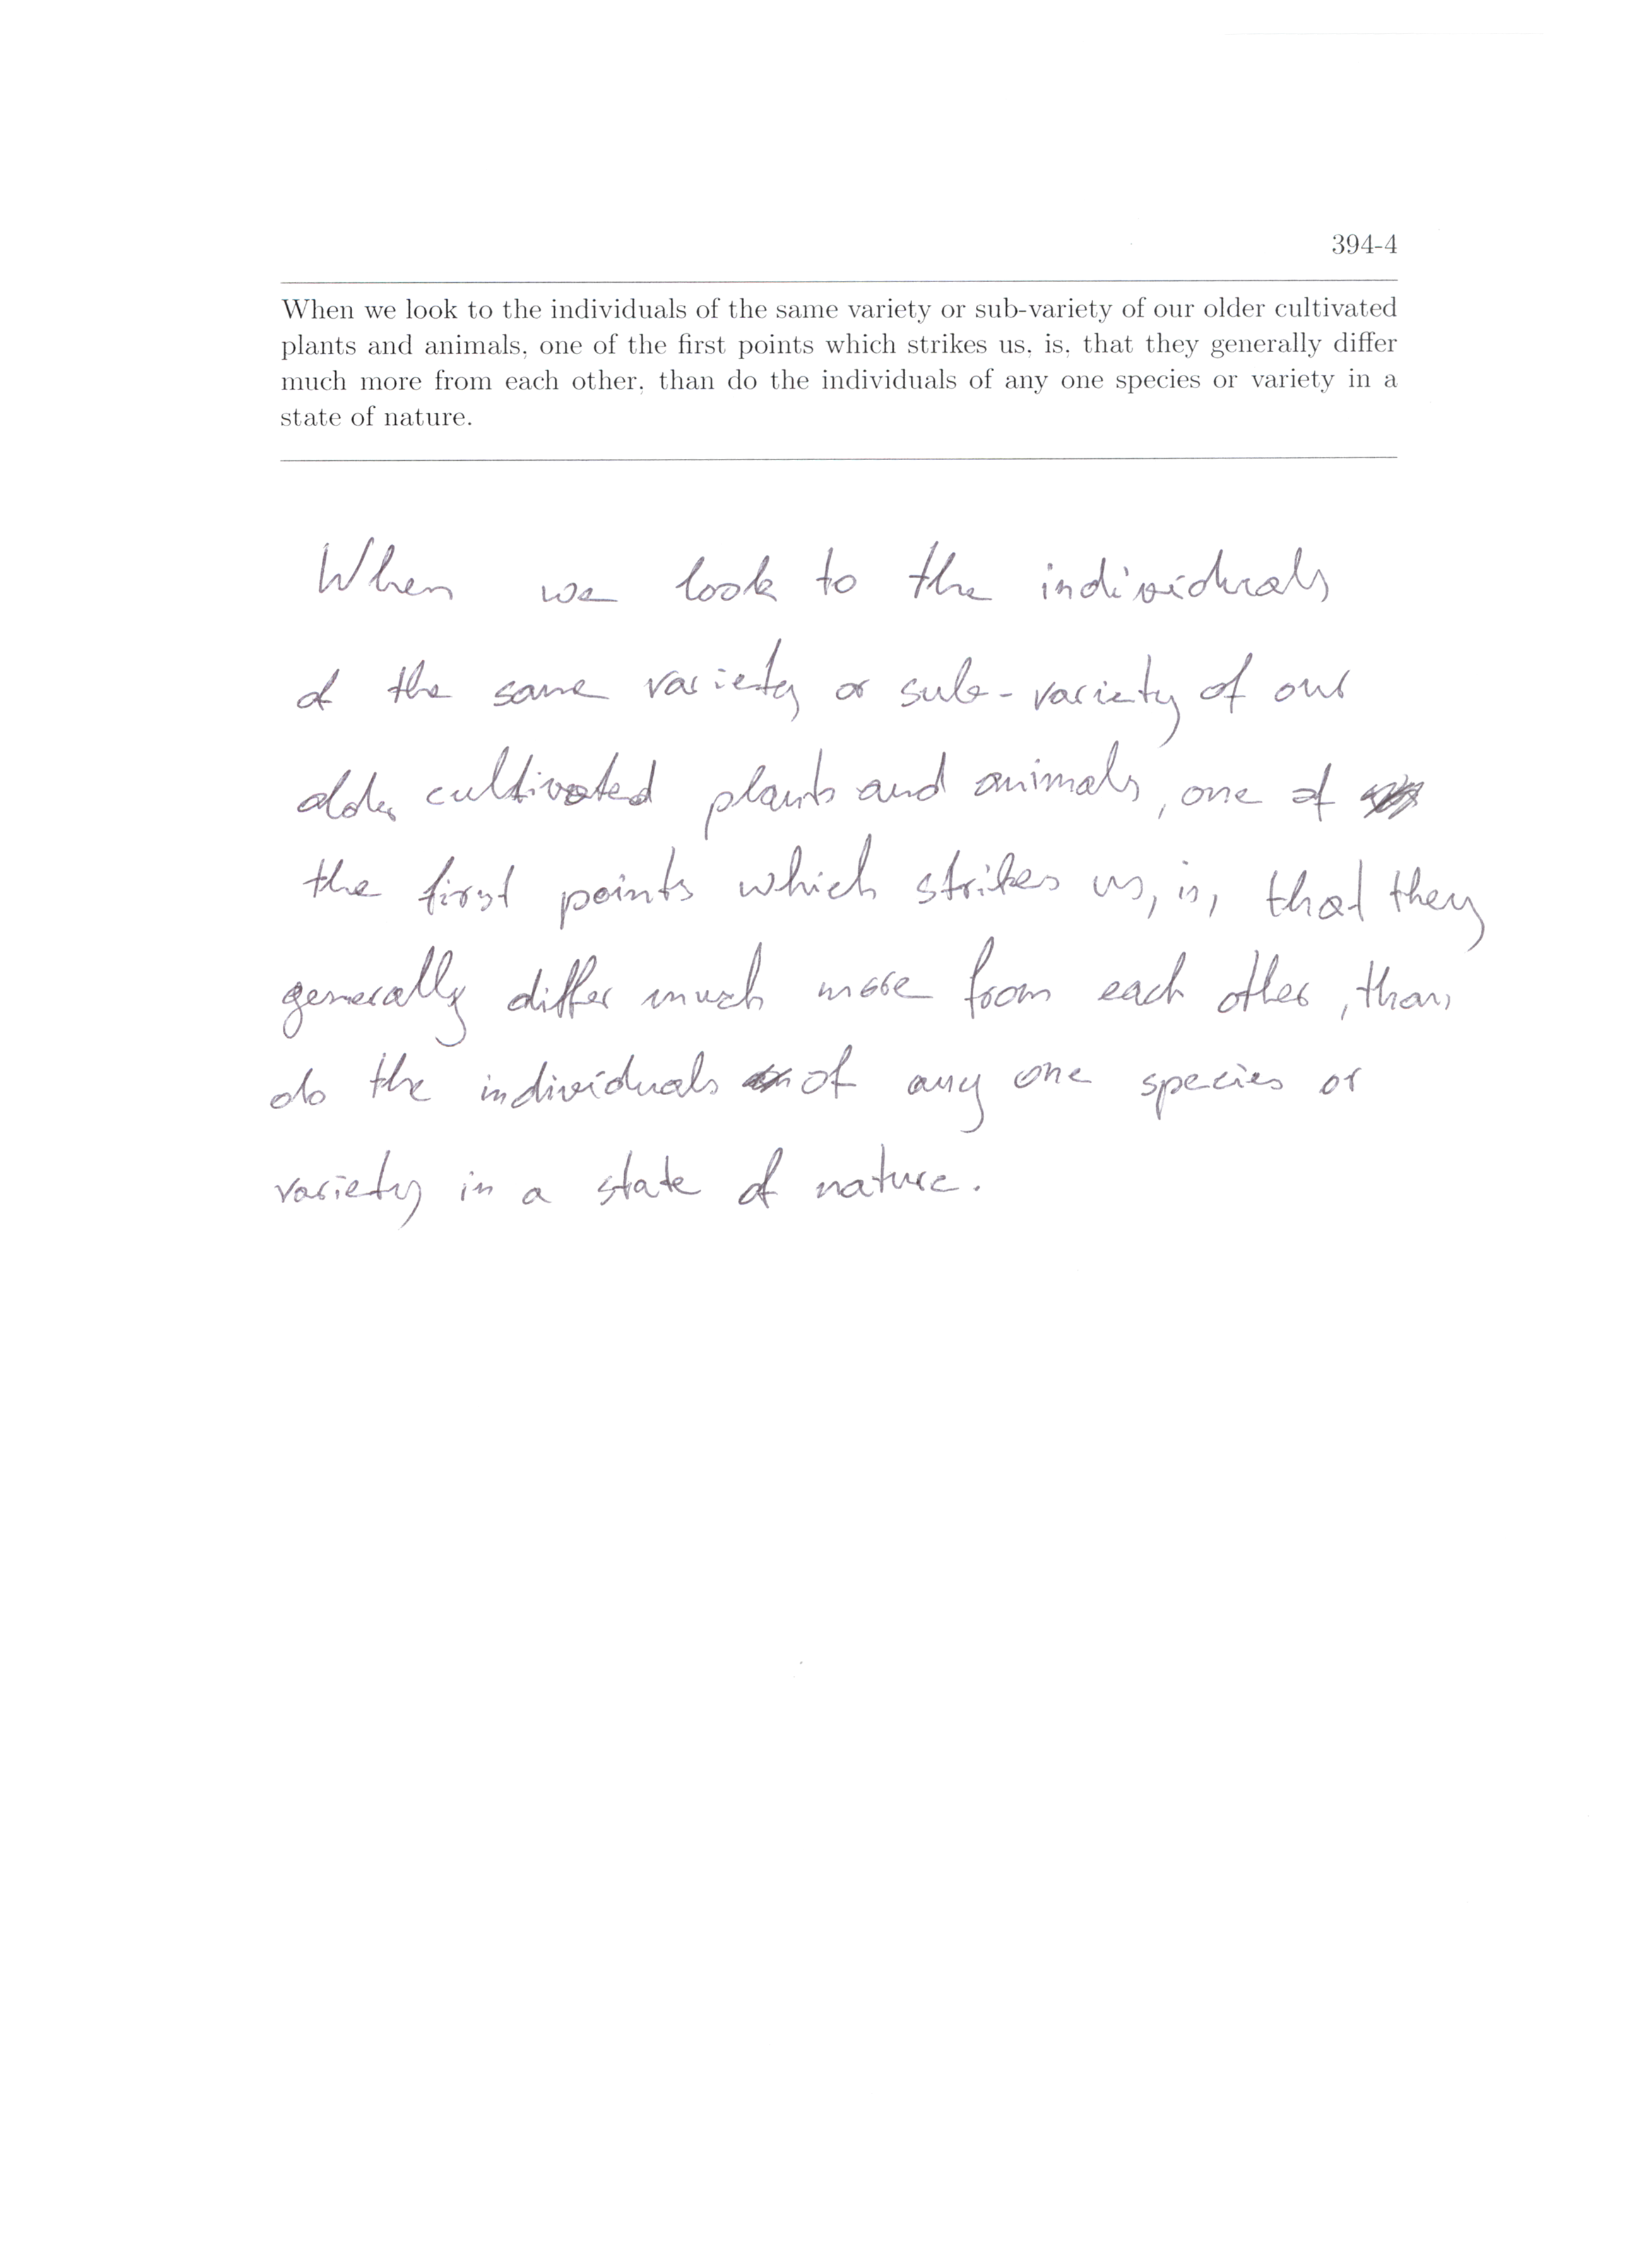 394-4
When we look to the individuals of the same variety or sub-variety of our older cultivated
plants and animals, one of the first points which strikes us, is, that they generally differ
much more from each other, than do the individuals of any one species or variety in a
state of nature.
When we look to the individuals
of the same variety or sub-variety of our
older cultivated plants and animals, one of
the first points which strikes us, is, that they
generally differ much more from each other, than
do the individuals of any one species or
variety in a state of nature.